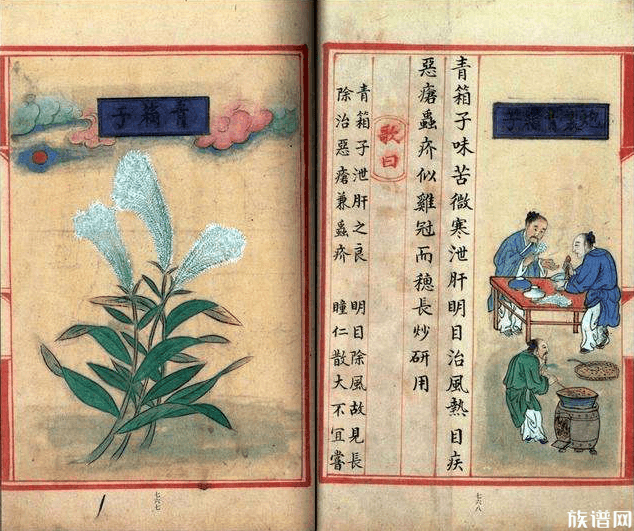 炮製青箱子
青箱子味苦微寒泄肝明目治風熱目疾
惡瘡蟲疥似雞冠而穗長炒研用
歌曰
青箱子泄肝之良 明目除風故見長
除治惡瘡兼蟲疥 瞳仁散大不宜嘗
七六八
青箱子
七六七
族谱网